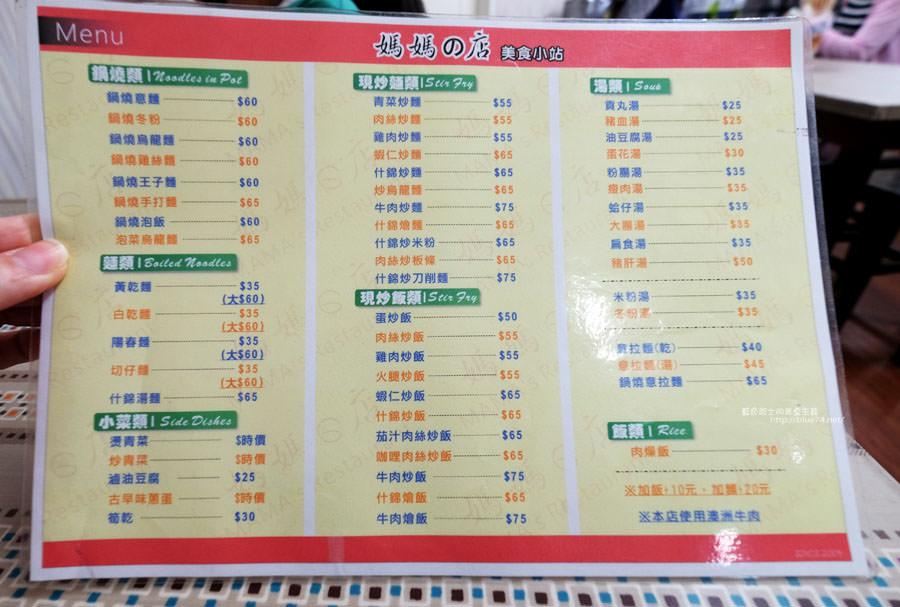 Menu
媽媽の店 美食小站
鍋燒類 Noodles in Pot
鍋燒意麵 $60
鍋燒冬粉 $60
鍋燒烏龍麵 $60
鍋燒雞絲麵 $60
鍋燒王子麵 $60
鍋燒手打麵 $65
鍋燒泡飯 $60
泡菜烏龍麵 $65
麵類 Boiled Noodles
黃乾麵 $35
(大$60)
白乾麵 $35
(大$60)
陽春麵 $35
(大$60)
切仔麵 $35
(大$60)
什錦湯麵 $65
小菜類 Side Dishes
燙青菜 $時價
炒青菜 $時價
滷油豆腐 $25
古早味蔥蛋 $時價
筍乾 $30
現炒麵類 Stir Fry
青菜炒麵 $55
肉絲炒麵 $55
雞肉炒麵 $55
蝦仁炒麵 $65
什錦炒麵 $65
炒烏龍麵 $65
牛肉炒麵 $75
什錦燴麵 $65
什錦炒米粉 $65
肉絲炒板條 $65
什錦炒刀削麵 $75
現炒飯類 Stir Fry
蛋炒飯 $50
肉絲炒飯 $55
雞肉炒飯 $55
火腿炒飯 $55
蝦仁炒飯 $65
什錦炒飯 $65
茄汁肉絲炒飯 $65
咖哩肉絲炒飯 $65
牛肉炒飯 $75
什錦燴飯 $65
牛肉燴飯 $75
湯類 Soup
貢丸湯 $25
豬血湯 $25
油豆腐湯 $25
蛋花湯 $30
粉腸湯 $35
瘦肉湯 $35
蛤仔湯 $35
大腸湯 $35
扁食湯 $35
豬肝湯 $50
米粉湯 $35
冬粉湯 $35
意拉麵(乾) $40
意拉麵(湯) $45
鍋燒意拉麵 $65
飯類 Rice
肉燥飯 $30
※加飯+10元，加麵+20元
※本店使用澳洲牛肉
http://blue74.net/